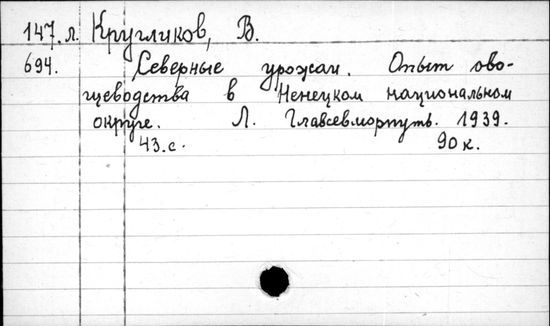 147.л. Кругликов, В.
694. Северные урожаи. Опыт ово-
щеводства в Ненецком национальном
округе. Л. Главсевморпуть. 1939.
43.с. 90к.